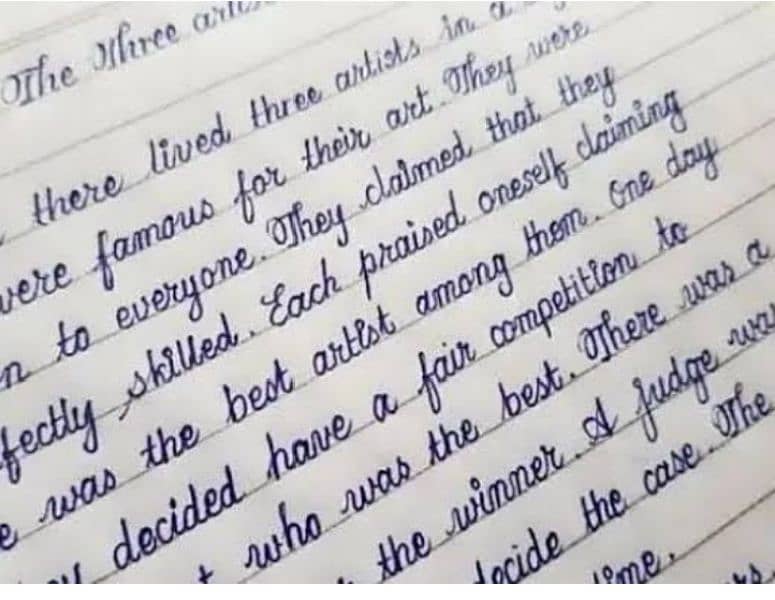 The Three
there lived three artists in a
were famous for their art. They were
to everyone. They claimed that they
skilled. Each praised oneself claiming
was the best artist among them. One day
decided have a fair competition to
who was the best. There was a
the winner. A judge was
decide the case. The